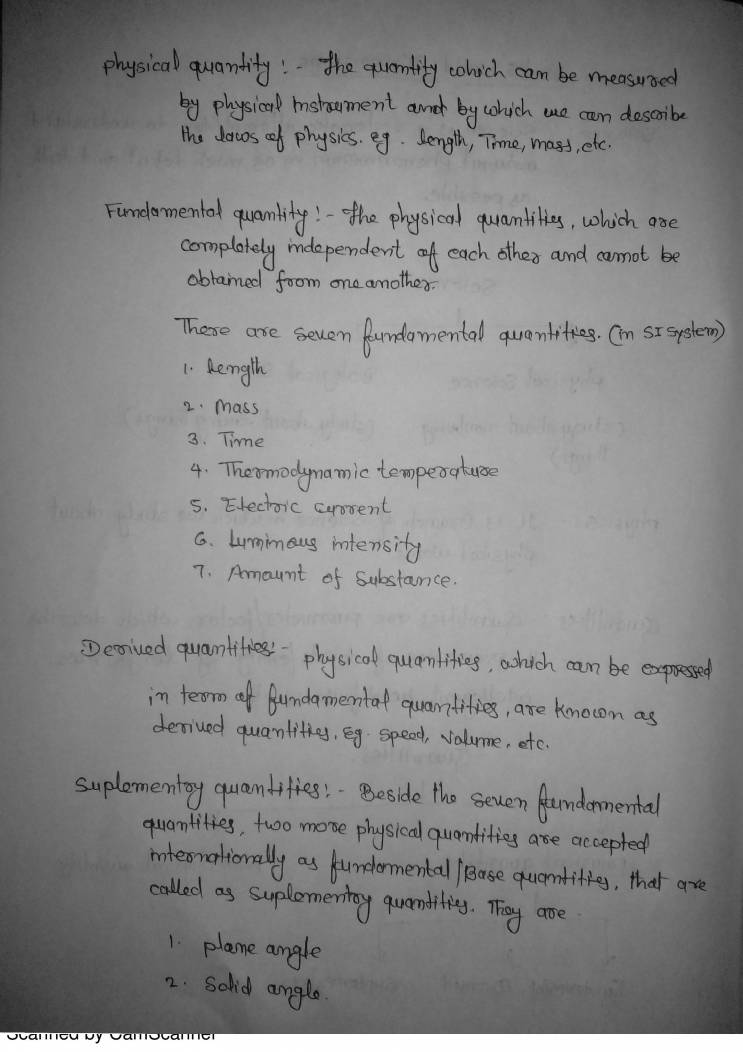 physical quantity :- The quantity which can be measured
by physical Instrument and by which we can describe
the laws of physics. eg. length, Time, mass, etc.
Fundamental quantity :- The physical quantities, which are
completely independent of each other and cannot be
obtained from one another.
There are seven fundamental quantities. (in SI System)
1. length
2. Mass
3. Time
4. Thermodynamic temperature
5. Electric current
6. Luminous intensity
7. Amount of Substance.
Derived quantities :- physical quantities, which can be expressed
in term of fundamental quantities, are known as
derived quantities, Eg. speed, Volume, etc.
Suplementry quantities :- Beside the seven fundamental
quantities, two more physical quantities are accepted
internationally as fundamental/Base quantities, that are
called as Suplementry quantities. They are
1. plane angle
2. Solid angle.
Scanned by CamScanner